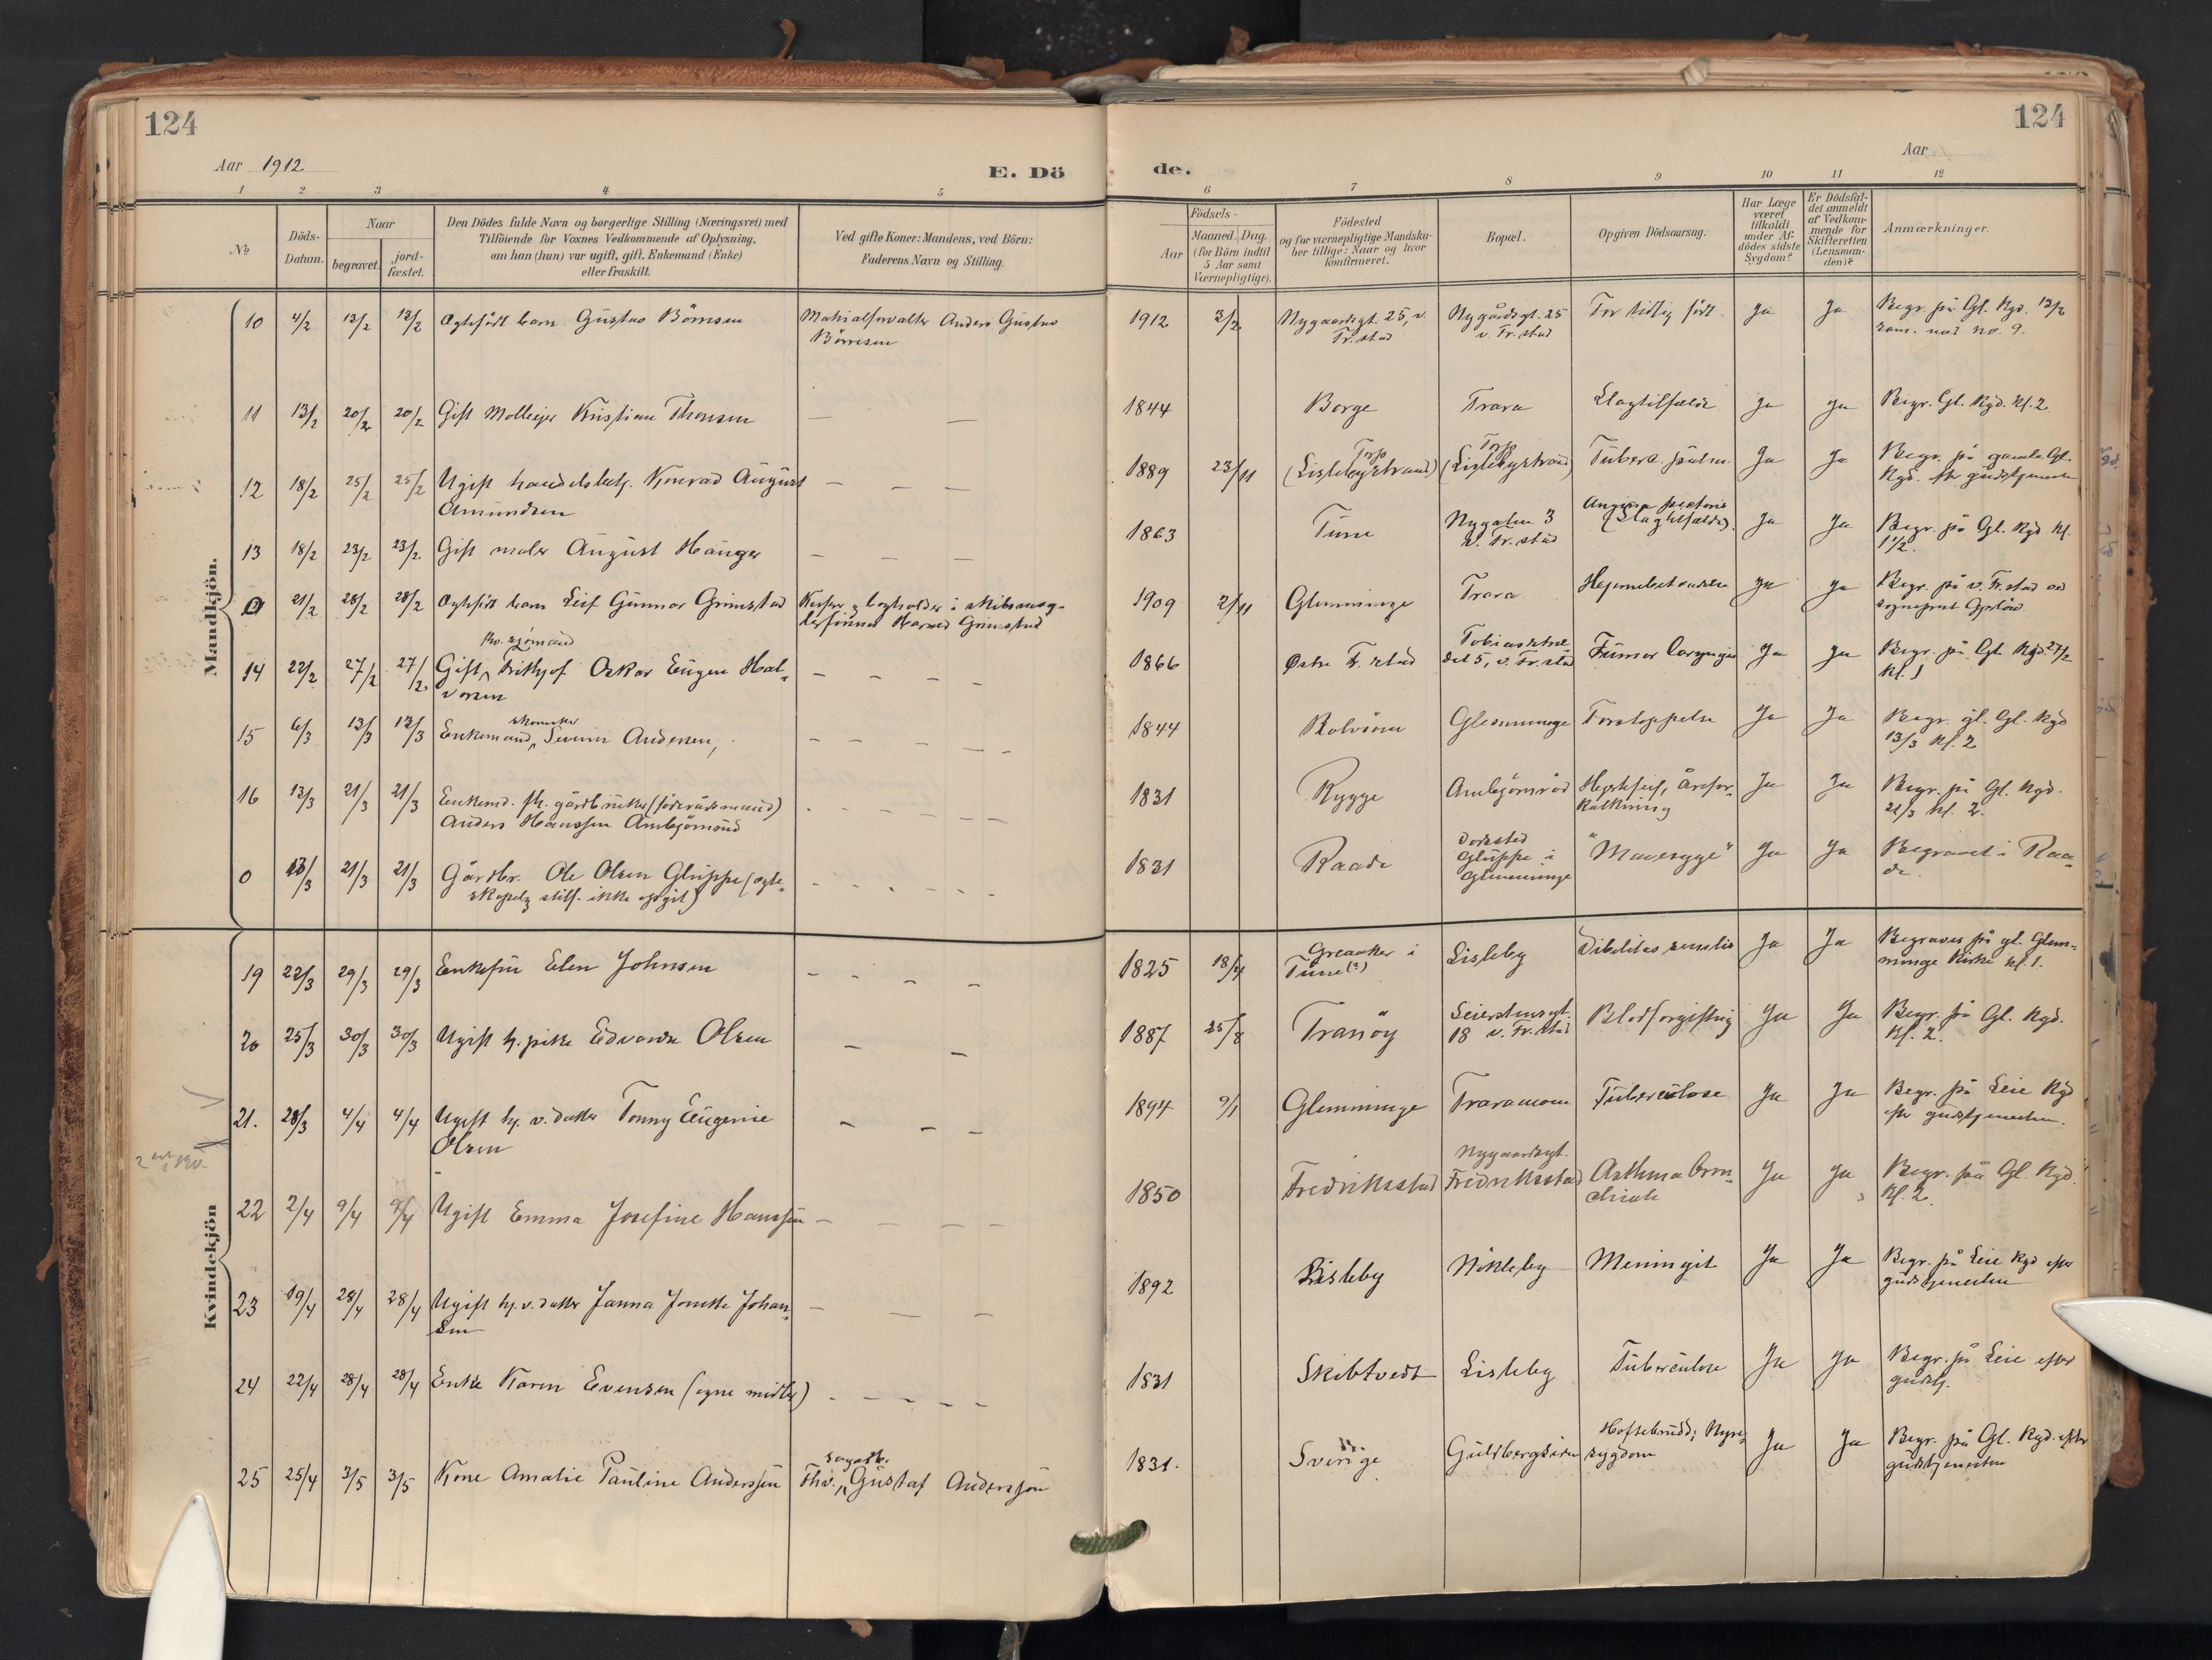 124
124
Aar 1912
E. Dö
de.
Aar
1 2 3 4 5 6 7 8 9 10 11 12
No.
Döds-
Datum.
Naar
begravet.
jord-
fæstet.
Den Dödes fulde Navn og borgerlige Stilling (Næringsvei) med
Tilföiende for Voxnes Vedkommende af Oplysning,
om han (hun) var ugift, gift, Enkemand (Enke)
eller fraskilt.
Ved gifte Koner: Mandens, ved Börn:
Faderens Navn og Stilling.
Födsels-
Aar
Maaned. Dag.
(for Börn indtil
5 Aar samt
Værnepligtige).
Födested
og for værnepligtige Mandska-
ber tillige: Naar og hvor
konfirmeret.
Bopæl.
Opgiven Dödsaarsag.
Har Læge
været
tilkaldt
under Af-
dödes sidste
Sygdom?
Er Dödsfal-
det anmeldt
af Vedkom-
mende for
Skifteretten
(Lensman-
den)?
Anmærkninger.
Mandkjön.
10 4/2 13/2 13/2 Ægtefödt barn Gustav Börresen
Matrialforvalter Anders Gustav
Börresen
1912 3/2 Nygaardsgt. 25, v.
Fr.stad
Nygårdsgt. 25
v. Fr.stad
For tidlig född Ja Ja
Begr. på Gl. Kgd. 13/2
sam. med no. 9.
11 13/2 20/2 20/2 Gift Mölleeier Kristian Thorsen — —
1844 Borge Trara Slagtilfælde Ja Ja Begr. Gl. Kgd. Kl. 2
12 18/2 25/2 25/2 Ugift handelsbetj. Konrad August
Amundsen
— — —
1889 23/11 Torp
(Lislebystrand)
Torp
(Lislebystrand)
Tuberc. pulm. Ja Ja
Begr. på gamle Gl.
Kgd. efter gudstjenesten
13 18/2 23/2 23/2 Gift maler August Hauger — — —
1863 Tune
Nygaten 3
v. Fr.stad
Angina pectoris
(Slagtilfælde).
Ja Ja
Begr. på Gl. Kgd Kl.
1 1/2.
0 21/2 28/2 28/2 Ægtefödt barn Leif Gunnar Grimstad
Kasser og bogholder i skibsmæg-
lerfirmaet Harald Grimstad
1909 2/11 Glemminge Trara Hjernebetændelse Ja Ja
Begr. på v. Fr.stad av
sogneprest
14 22/2 27/2 27/2 Gift, fhv. sjömand Frithjof Oskar Eugen Hal-
vorsen
— — — —
1866 Østre Fr.stad
v. Fr.stad
Tumor laryngis Ja Ja
Begr. på Gl. Kgd 27/2
Kl. 1
15 6/3 13/3 13/3 Enkemand, skomaker Severin Andersen, — — — — —
1844 Rolvsöen Glemminge Forstoppelse Ja Ja
Begr. gl. Gl. Kgd
13/3 Kl. 2
16 13/3 21/3 21/3 Enkemd. fh. gårdbruker (föderådsmand)
Anders Hanssen Ambjörnröd
— — — — —
1831 Rygge Ambjörnröd
Hjertefeil, Årefor-
kalkning
Ja Ja
Begr. på Gl. Kgd.
21/3 Kl. 2.
0 13/3 21/3 21/3 Gårdbr. Ole Olsen Gluppe (ægte-
skapelig still. ikke opgit)
— — — — —
1831 Raade
Dödssted
Gluppe i
Glemminge
"Mavesyge" Ja Ja
Begravet i Raa-
de.
Kvindekjön
19 22/3 29/3 29/3 Enkefru Elen Johnsen — — — —
1825 18/4 Greaaker i
Tune (?)
Lisleby Debilitas senilis Ja Ja
Begraves på gl. Glem-
minge Kirke Kl. 1.
20 25/3 30/3 30/3 Ugift tj. pike Edvarda Olsen — —
1887 25/8 Tranöy
Leierstensgt.
18 v. Fr.stad
Blodforgiftnig Ja Ja
Begr. på Gl. Kgd.
Kl. 2.
21. 28/3 4/4 4/4 Ugift hj. v. datter Tonny Eugenie
Olsen
— — —
1894 9/1 Glemminge Traramoen Tuberculose Ja Ja
Begr. på Leie Kgd
efter gudstjenesten.
22 2/4 9/4 9/4 Ugift Emma Josefine Hanssen — — — —
1850 Fredriksstad
Nygaardsgt.
Fredriksstad
Asthma bron-
chiale
Ja Ja
Begr. på Gl. Kgd.
Kl. 2.
23 19/4 28/4 28/4 Ugift hj. v. datter Janna Jonette Johan-
sen
— — —
1892 Lisleby Nökleby Meningit Ja Ja
Begr. på Leie Kgd efter
gudstjenesten
24 22/4 28/4 28/4 Enke Karen Evensen (egne midler) — — — — —
1831 Skibtvedt Lisleby Tuberculose Ja Ja
Begr. på Leie efter
gudstj.
25 25/4 3/5 3/5 Kone Amalie Pauline Anderssön
Fhv. sagarb. Gustaf Anderssön
1831. Sverige Guldbergsiden
Hoftebrudd; Nyre-
sygdom
Ja Ja
Begr. på Gl. Kgd. efter
gudstjenesten